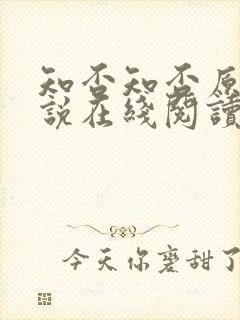 知否知否原
说在綫閱讀
今天你磨甜了